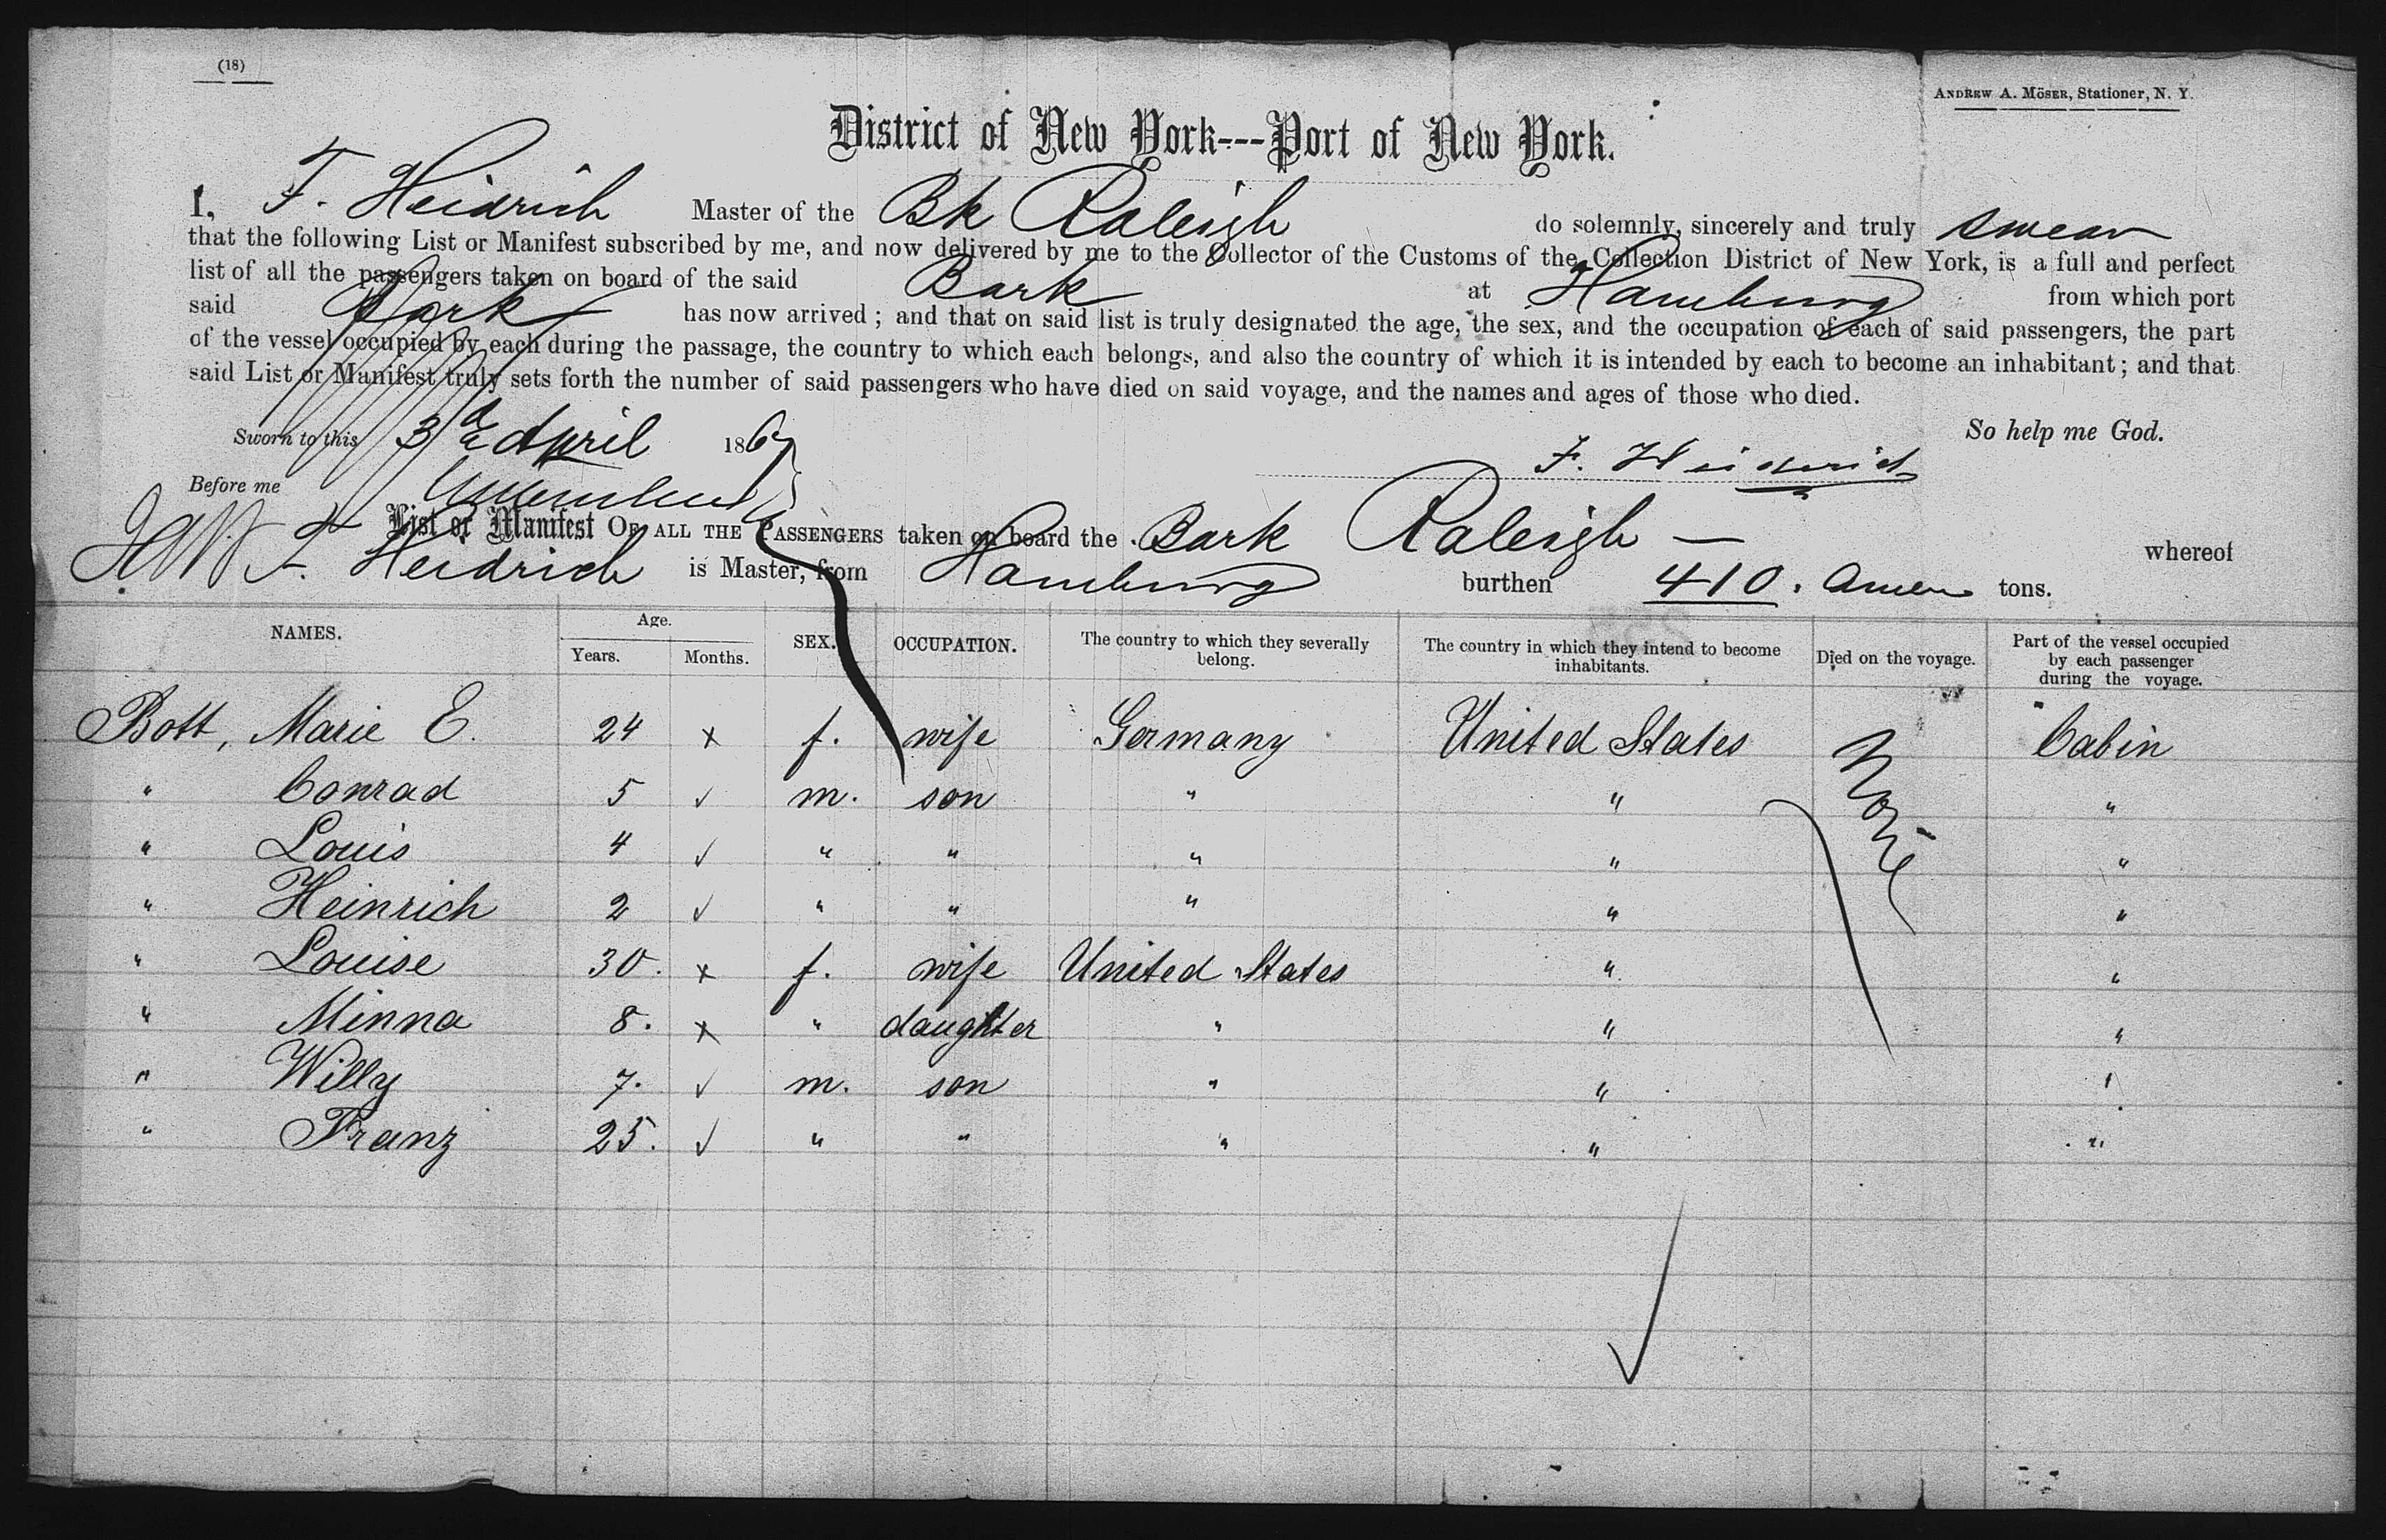 (18)
ANDREW A. MÖSER, Stationer, N. Y.
District of New York---Port of New York.
I, F. Heidrich Master of the Bk Raleigh do solemnly, sincerely and truly swear
that the following List or Manifest subscribed by me, and now delivered by me to the Collector of the Customs of the Collection District of New York, is a full and perfect
list of all the passengers taken on board of the said Bark at Hamburg from which port
said Bark has now arrived; and that on said list is truly designated the age, the sex, and the occupation of each of said passengers, the part
of the vessel occupied by each during the passage, the country to which each belongs, and also the country of which it is intended by each to become an inhabitant; and that
said List or Manifest truly sets forth the number of said passengers who have died on said voyage, and the names and ages of those who died.
So help me God.
Sworn to this 3d April 1867
F. Heidrich
Before me
List or Manifest OF ALL THE PASSENGERS taken on board the Bark Raleigh — whereof
F. Heidrich is Master, from Hamburg burthen 410. tons.
NAMES. Age. Years. Months. SEX. OCCUPATION. The country to which they severally belong. The country in which they intend to become inhabitants. Died on the voyage. Part of the vessel occupied by each passenger during the voyage.
Bott, Marie E. 24 x f. wife Germany United States None Cabin
" Conrad 5 ✓ m. son " " "
" Louis 4 ✓ " " " " "
" Heinrich 2 ✓ " " " " "
" Louise 30. x f. wife United States " "
" Minna 8. x " daughter " " "
" Willy 7. ✓ m. son " " "
" Franz 25. ✓ " " " " "